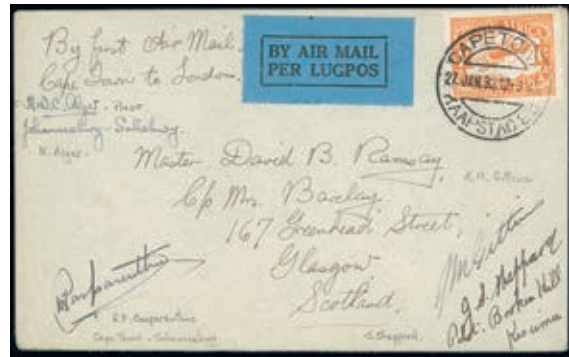 By first Air Mail.
Cape Town to London.
BY AIR MAIL
PER LUGPOS
CAPETOWN
27 JAN 32
KAAPSTAD
Johannesburg - Salisbury.
Master David B. Ramsay,
c/o Mrs. Barclay
167 Greenhead Street,
Glasgow
Scotland.
Cape Town - Johannesburg
J. S. Sheppard
Pilot. Broken Hill
Kisumu
S. Sheppard.